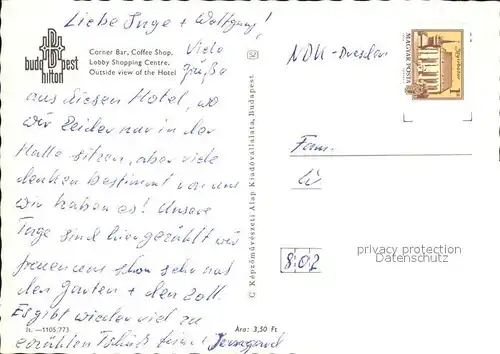 Liebe Inge + Wolfgang!
budapest
hilton
Corner Bar, Coffee Shop,
Lobby Shopping Centre,
Outside view of the Hotel
Viele
Grüße
aus diesem Hotel, wo
wir leider nur in der
Halle sitzen, aber viele
denken bestimmt von uns
wir haben es! Unsere
Tage sind hier gezählt wir
freuen uns schon sehr auf
den Garten + den Zoll.
Es gibt wieder viel zu
erzählen
Irmgard
It. —1105/773
Ára: 3,50 Ft
C Képzőművészeti Alap Kiadóvállalata, Budapest
NDK - Dresden
MAGYAR POSTA
1 Ft
Fam.
802
privacy protection
Datenschutz